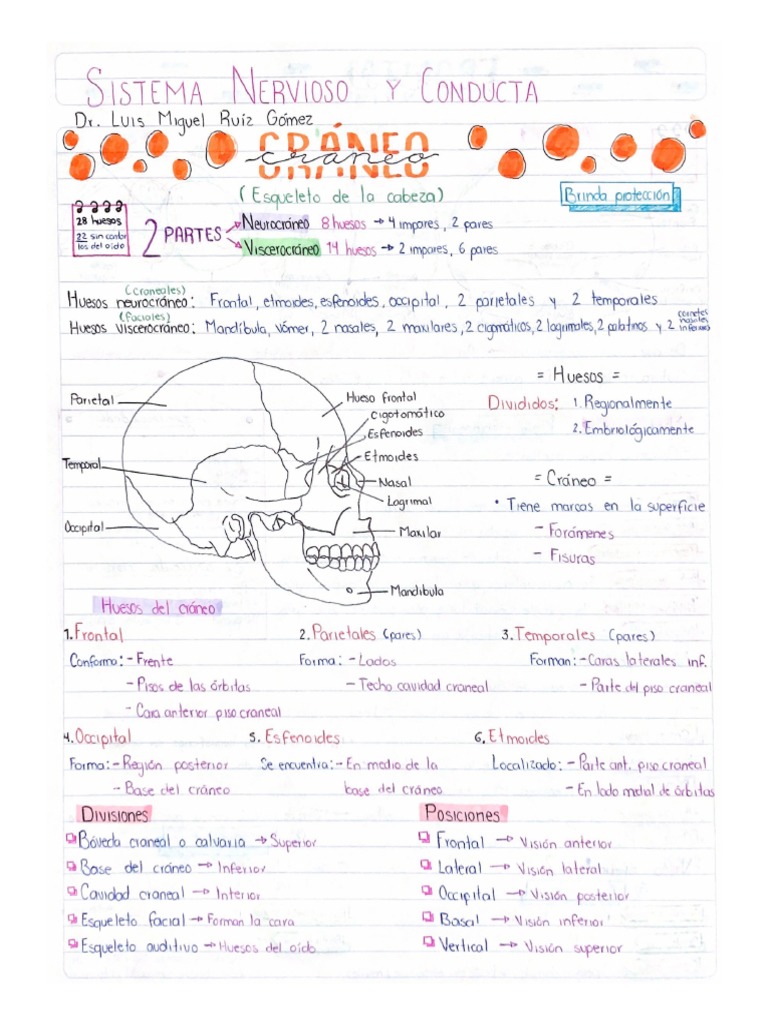 SISTEMA NERVIOSO Y CONDUCTA
Dr. Luis Miguel Ruíz Gómez
CRÁNEO
cráneo
(Esqueleto de la cabeza)
Brinda protección
28 huesos
22 sin contar
los del oído
2 PARTES
Neurocráneo 8 huesos → 4 impares, 2 pares
Viscerocráneo 14 huesos → 2 impares, 6 pares
(craneales)
Huesos neurocráneo: Frontal, etmoides, esfenoides, occipital, 2 parietales y 2 temporales
(faciales)
Huesos viscerocráneo: Mandíbula, vómer, 2 nasales, 2 maxilares, 2 cigomáticos, 2 lagrimales, 2 palatinos y 2 cornetes nasales inferiores
Parietal
Temporal
Occipital
Hueso frontal
Cigotomático
Esfenoides
Etmoides
Nasal
Lagrimal
Maxilar
Mandibula
= Huesos =
Divididos: 1. Regionalmente
2. Embriológicamente
= Cráneo =
• Tiene marcas en la superficie
- Forámenes
- Fisuras
Huesos del cráneo
1. Frontal
Conforma: - Frente
- Pisos de las órbitas
- Cara anterior piso craneal
2. Parietales (pares)
Forma: - Lados
- Techo cavidad craneal
3. Temporales (pares)
Forman: - Caras laterales inf.
- Parte del piso craneal
4. Occipital
Forma: - Región posterior
- Base del cráneo
5. Esfenoides
Se encuentra: - En medio de la
base del cráneo
6. Etmoides
Localizado: - Parte ant. piso craneal
- En lado medial de órbitas
Divisiones
Bóveda craneal o calvaria → Superior
Base del cráneo → Inferior
Cavidad craneal → Interior
Esqueleto facial → Forman la cara
Esqueleto auditivo → Huesos del oído
Posiciones
Frontal → Visión anterior
Lateral → Visión lateral
Occipital → Visión posterior
Basal → Visión inferior
Vertical → Visión superior